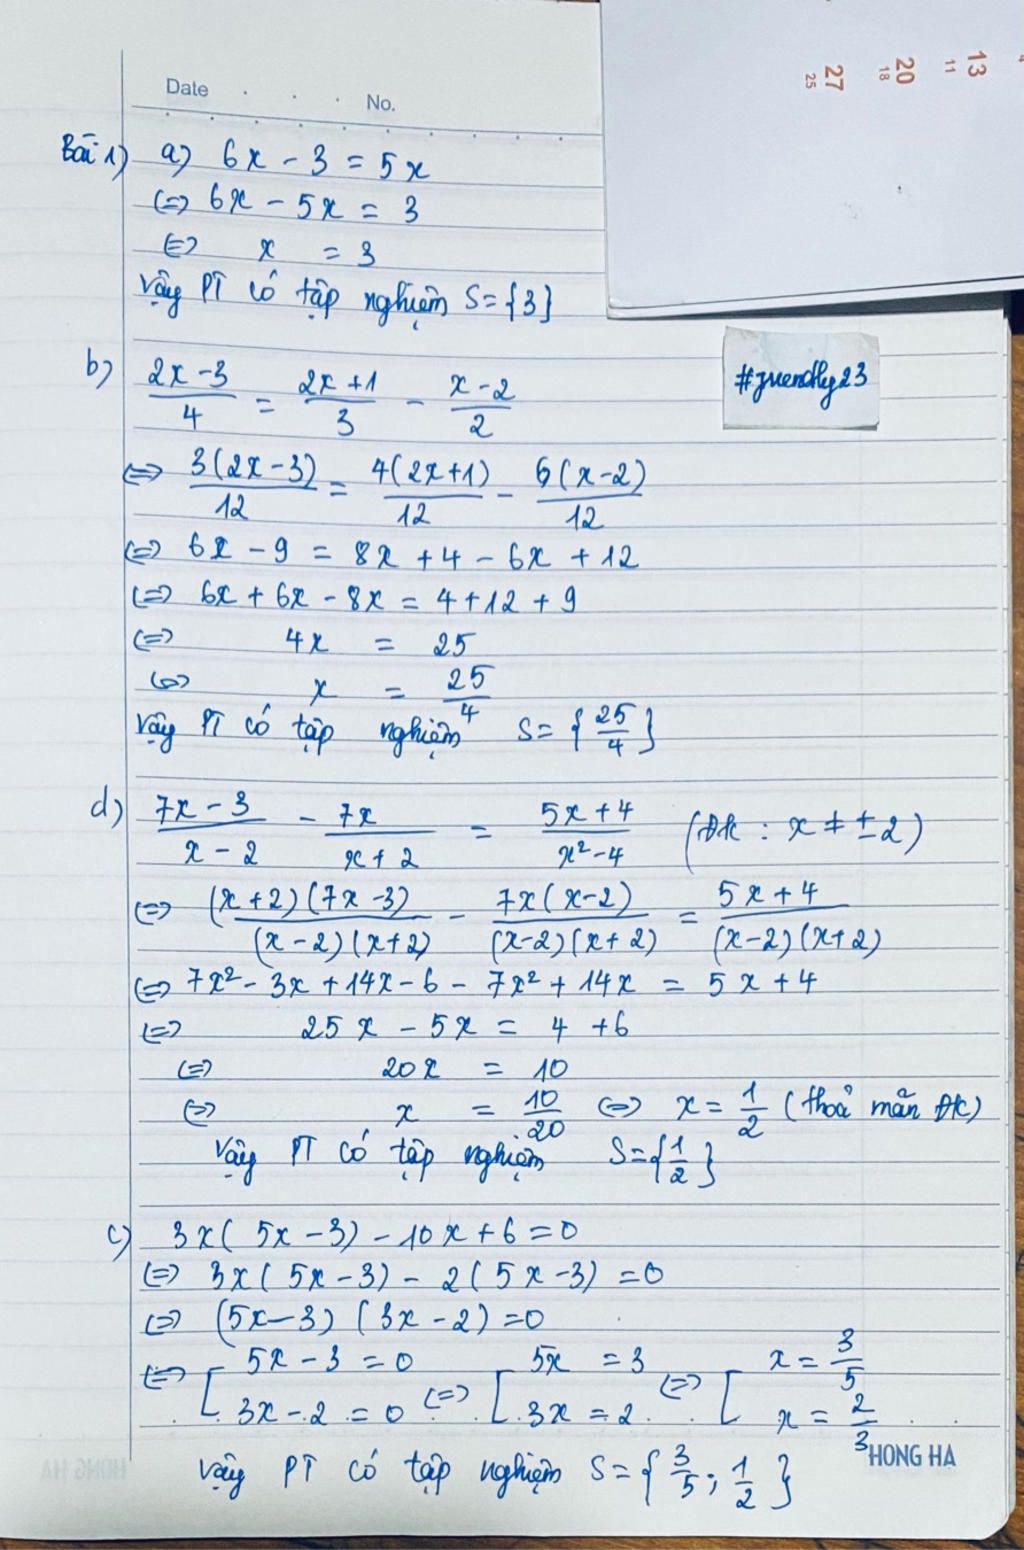 13
11
20
18
27
25
Date . . . No.
Bài 1) a) 6x - 3 = 5x
(=) 6x - 5x = 3
(=) x = 3
Vậy PT có tập nghiệm S = {3}
#juendly23
b) (2x - 3)/4 = (2x + 1)/3 - (x - 2)/2
(=) 3(2x - 3)/12 = 4(2x + 1)/12 - 6(x - 2)/12
(=) 6x - 9 = 8x + 4 - 6x + 12
(=) 6x + 6x - 8x = 4 + 12 + 9
(=) 4x = 25
(=) x = 25/4
Vậy PT có tập nghiệm S = {25/4}
d) (7x - 3)/(x - 2) - 7x/(x + 2) = (5x + 4)/(x² - 4) (ĐK : x ≠ ± 2)
(=) (x + 2)(7x - 3)/(x - 2)(x + 2) - 7x(x - 2)/(x - 2)(x + 2) = (5x + 4)/(x - 2)(x + 2)
(=) 7x² - 3x + 14x - 6 - 7x² + 14x = 5x + 4
(=) 25x - 5x = 4 + 6
(=) 20x = 10
(=) x = 10/20 (=) x = 1/2 (thoả mãn ĐK)
Vậy PT có tập nghiệm S = {1/2}
c) 3x(5x - 3) - 10x + 6 = 0
(=) 3x(5x - 3) - 2(5x - 3) = 0
(=) (5x - 3)(3x - 2) = 0
(=) [ 5x - 3 = 0 (=) [ 5x = 3 (=) [ x = 3/5
3x - 2 = 0 3x = 2 x = 2/3
HONG HA
Vậy PT có tập nghiệm S = {3/5; 1/2}